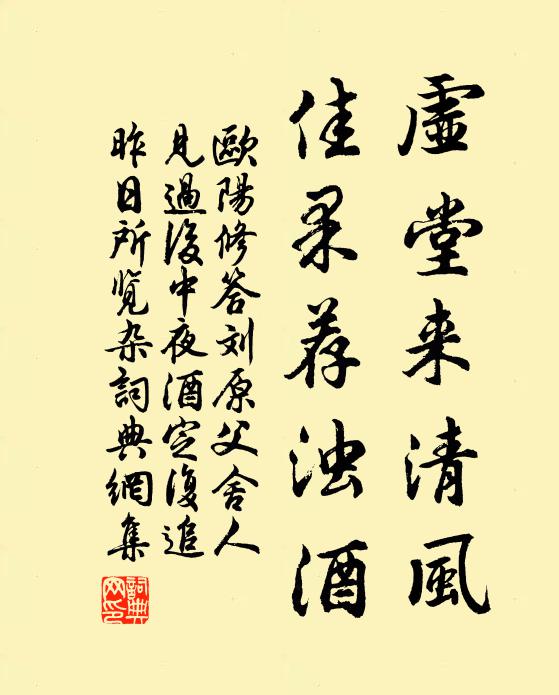 虛堂来清風
佳果荐浊酒
歐陽修答刘原父舍人
見過後中夜酒定復追
昨日所览杂詞典網集
詞典網印